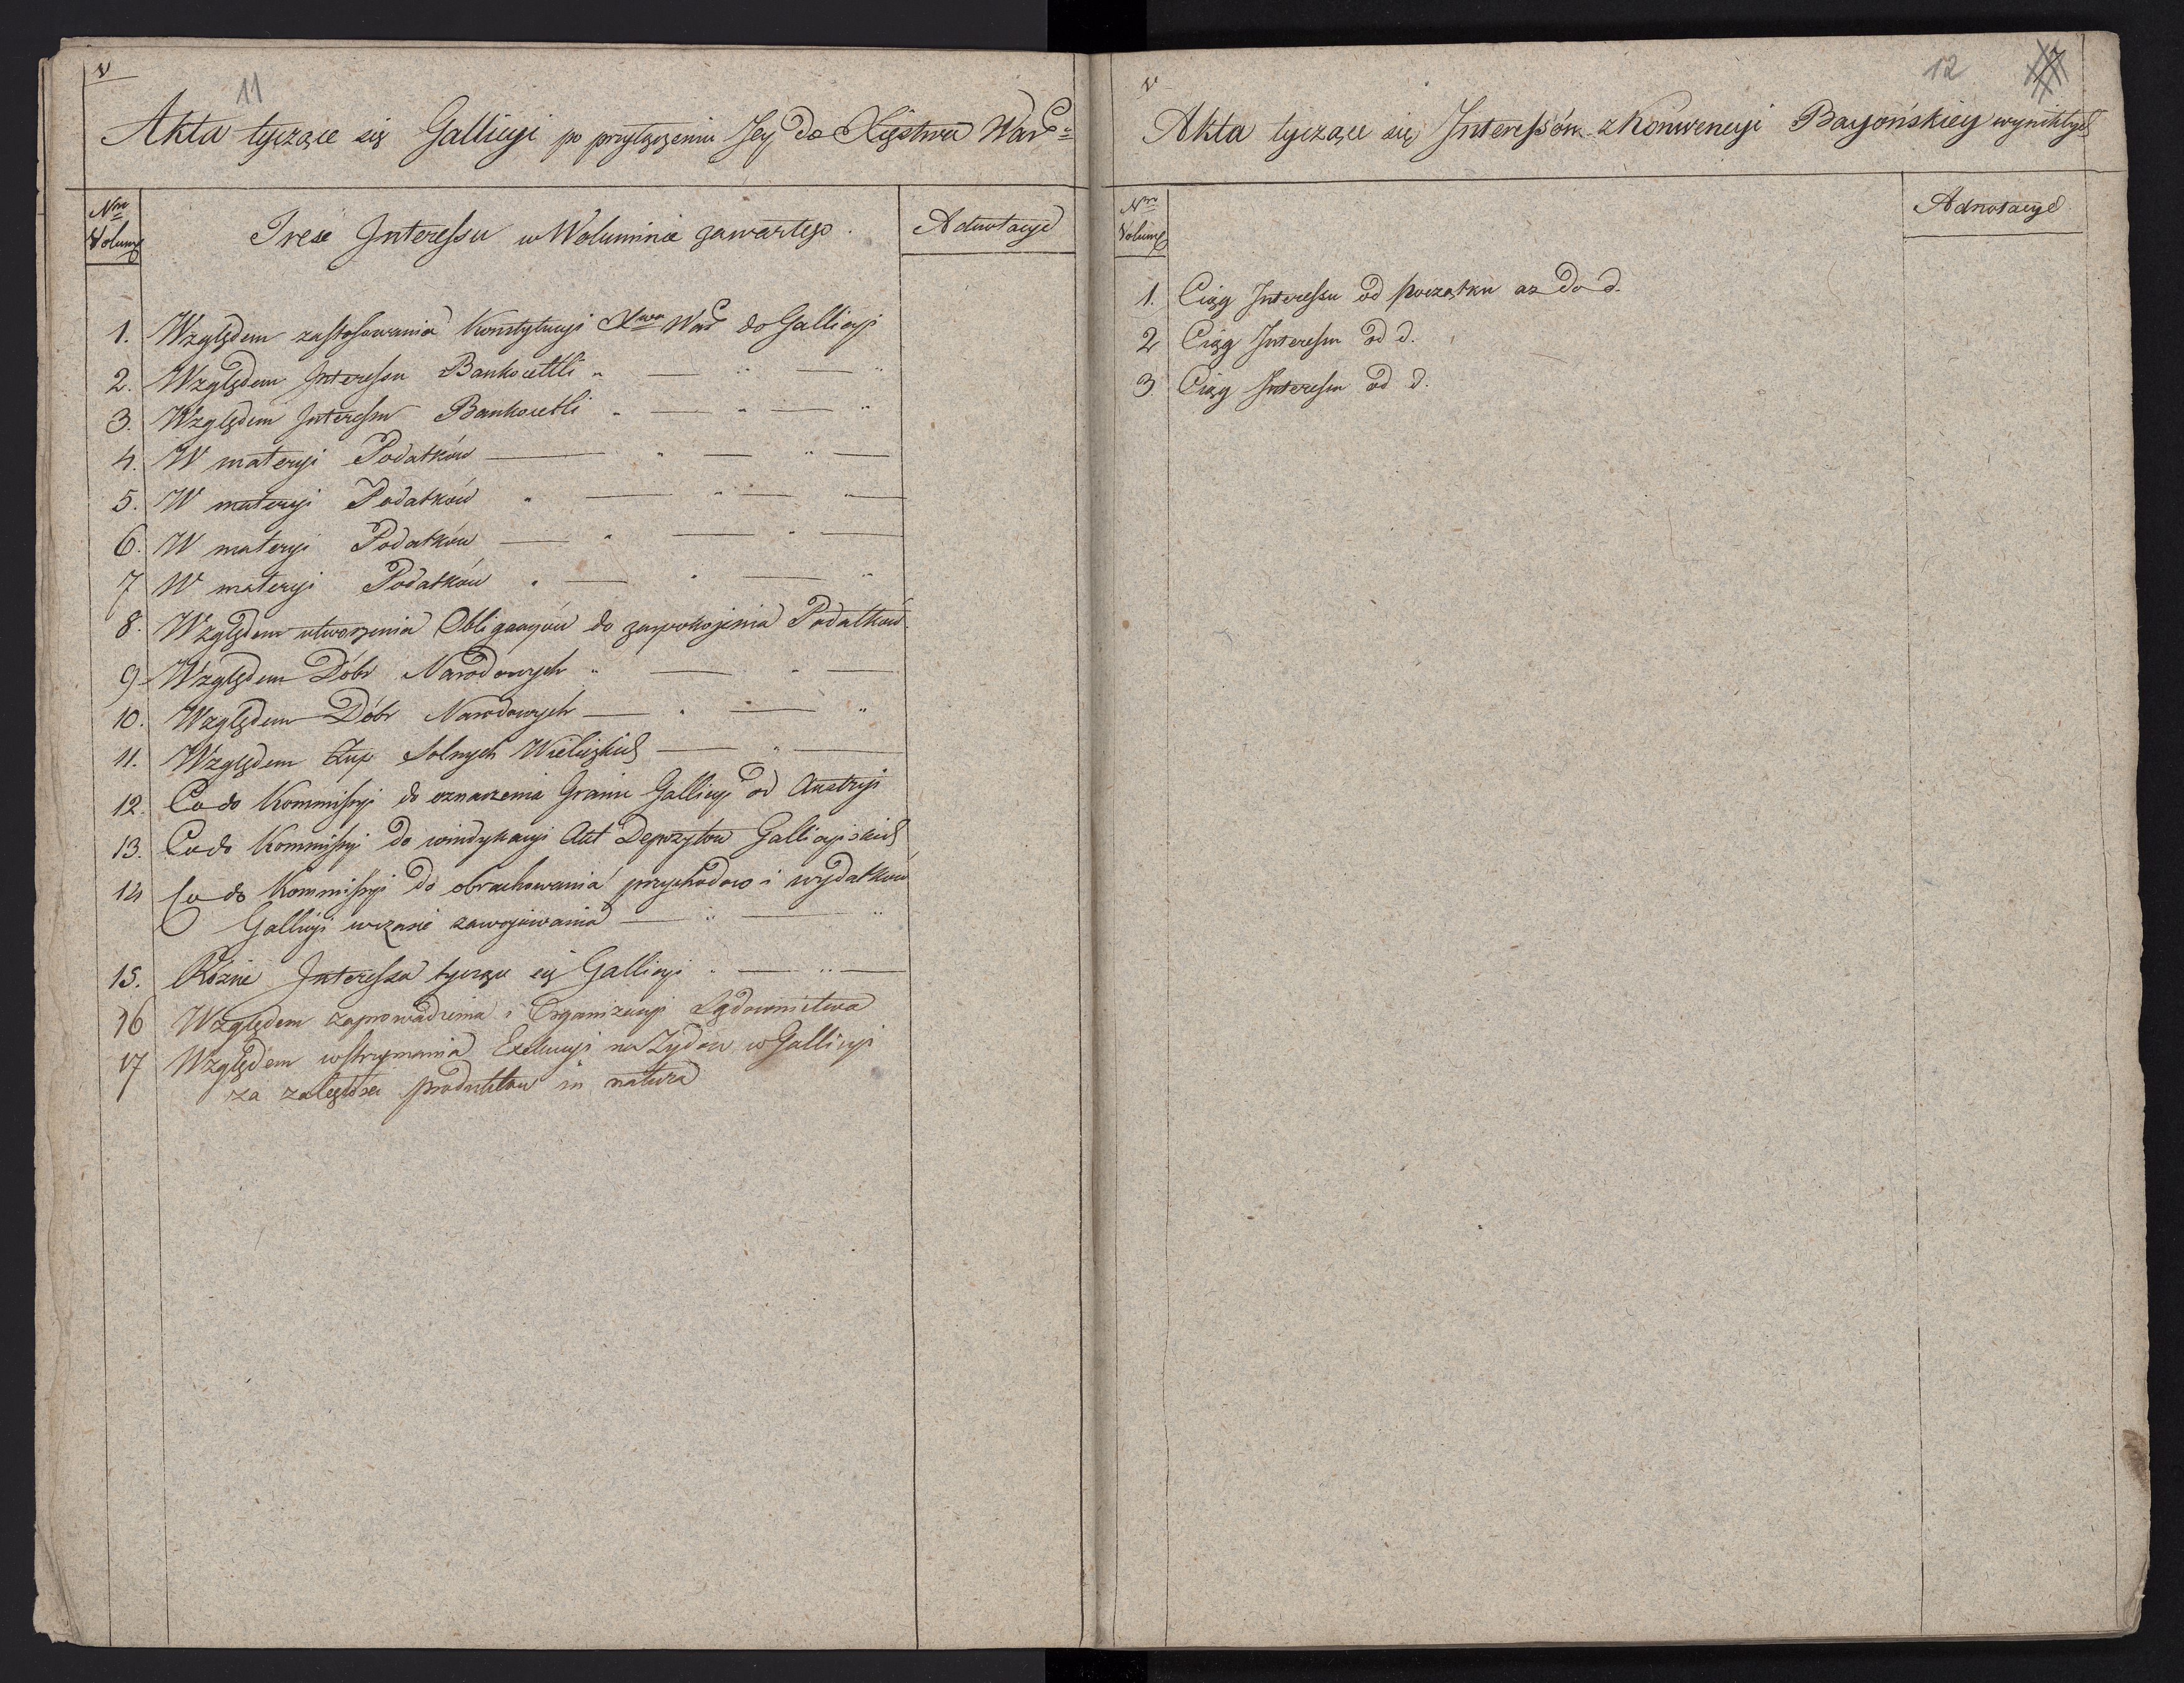 V
11
Akta tyczące się Gallicyi po przyłączeniu Jey do Xięstwa Wars:
Nro Volum
Treść Interessu w Woluminie zawartego.
Adnotacye
1. Względem zastosowania Konstytucyi Xtwa Wars do Gallicyi
2. Względem Interessu Bankocetlli
3. Względem Interessu Bankocetli
4. W materyi Podatków
5. W materyi Podatków
6. W materyi Podatków
7 W materyi Podatków
8. Względem utworzenia Obligacyów do zaspokojenia Podatków
9 Względem Dóbr Narodowych
10. Względem Dóbr Narodowych
11. Względem Żup Solnych Wielickich
12. Co do Kommissyi do oznaczenia Granic Gallicyi od Austryi
13. Co do Kommissyi do windykacyi Akt Depozytow Gallicyiskich
14 Co do Kommissyi do obrachowania przychodow i wydatków
Gallicyi wczasie zawojowania
15. Różne Interessa tyczące się Gallicyi
16 Względem zaprowadzenia i Organizacyi Sądownictwa
17 Względem wstrzymania Exekucyi na Żydów w Gallicyi
za zaległości produktow in natura
V
12
7
Akta tyczące się Interessów z Konwencyi Bayońskiey wynikłych
Nro Volum
Adnotacye
1. Ciąg Interessu od początku az do d.
2 Ciąg Interessu od d.
3. Ciąg Interessu od d.